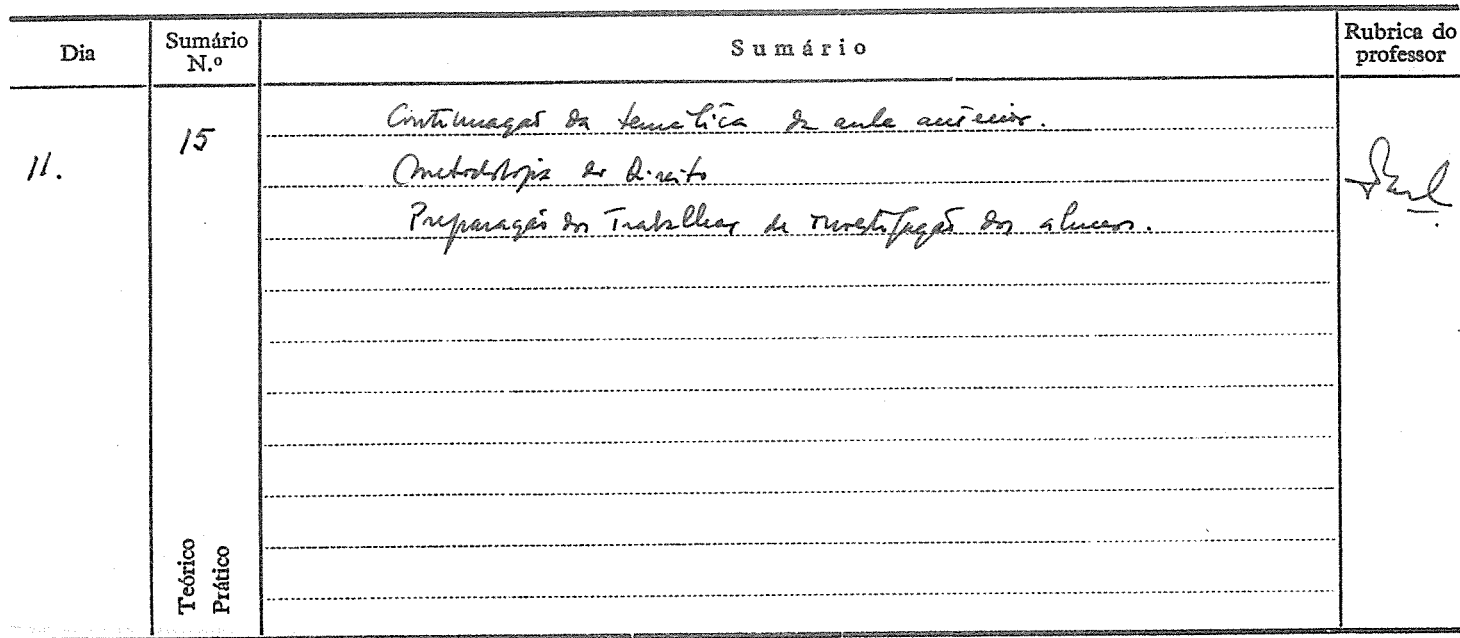 Dia
Sumário N.º
Sumário
Rubrica do professor
11.
15
Continuação da temática da aula anterior.
Metodologia do Direito
Preparação dos Trabalhos de investigação dos alunos.
Teórico
Prático